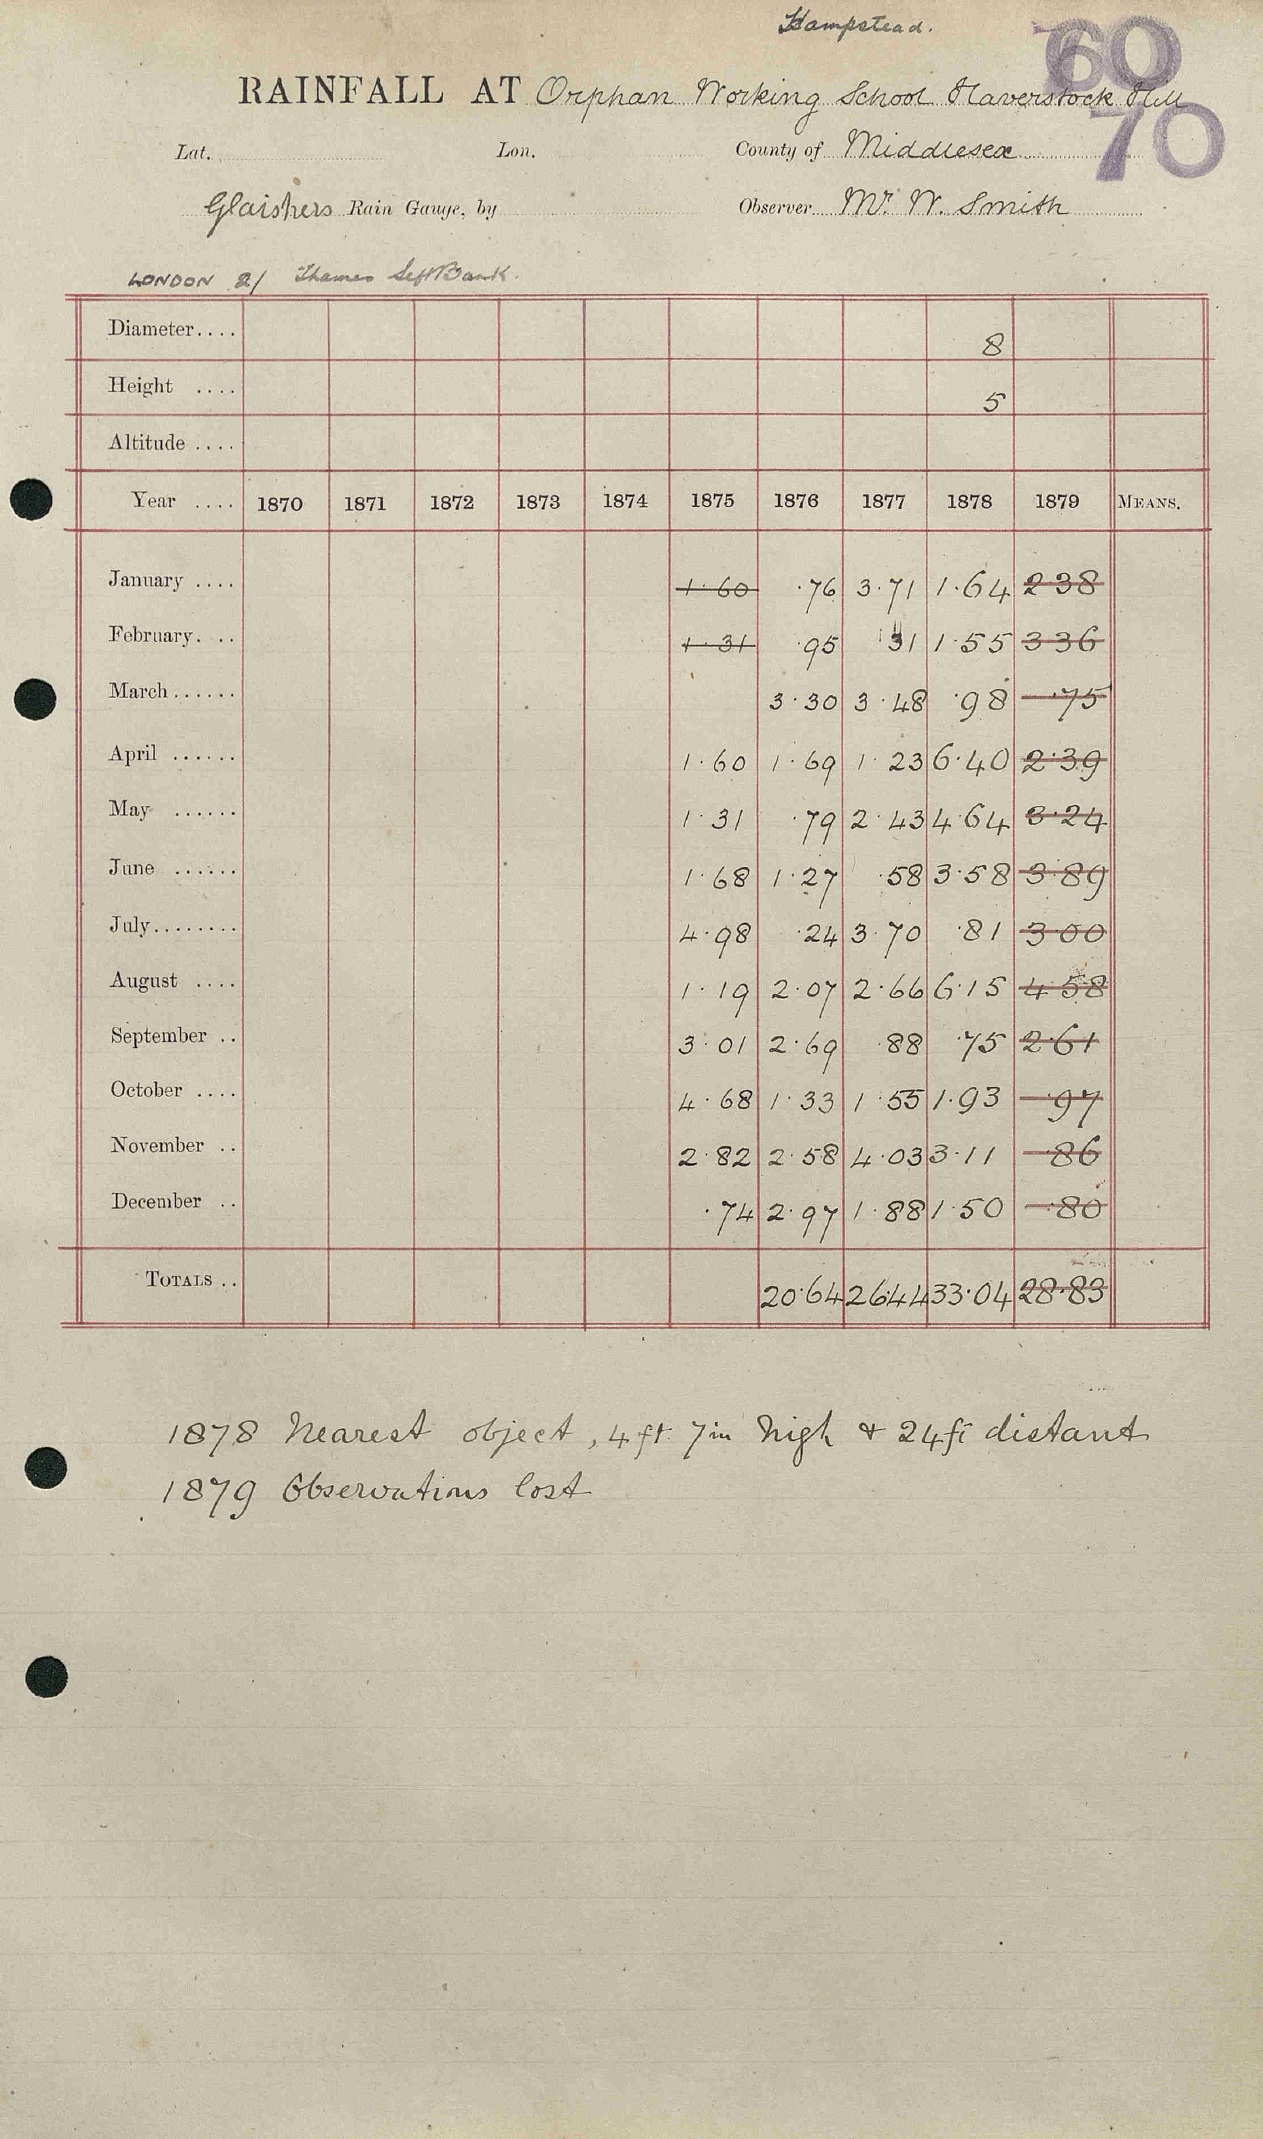 Hampstead.
60
RAINFALL AT Orphan Working School Haverstock Hill
70
Lat. Lon. County of Middlesex
Glaishers Rain Gauge, by Observer Mr. W. Smith
LONDON 2/ Thames Left Bank.
Diameter.... 8
Height .... 5
Altitude ....
Year .... 1870 1871 1872 1873 1874 1875 1876 1877 1878 1879 MEANS.
January .... 1.60 .76 3.71 1.64 2.38
February. .. 1.31 .95 1.31 1.55 3.36
March...... 3.30 3.48 .98 .75
April ...... 1.60 1.69 1.23 6.40 2.39
May ...... 1.31 .79 2.43 4.64 3.24
June ...... 1.68 1.27 .58 3.58 3.89
July........ 4.98 .24 3.70 .81 3.00
August .... 1.19 2.07 2.66 6.15 4.58
September .. 3.01 2.69 .88 .75 2.61
October .... 4.68 1.33 1.55 1.93 .97
November .. 2.82 2.58 4.03 3.11 .86
December .. .74 2.97 1.88 1.50 .80
TOTALS .. 20.64 26.44 33.04 28.83
1878 Nearest object, 4 ft 7 in high & 24 ft distant
1879 Observations lost